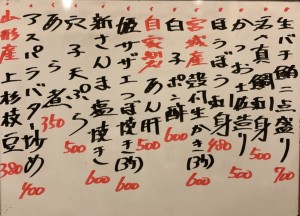 生バチ鮪二点盛り 700
活〆真鯛刺身 500
かつお土佐造り 500
ほうぼう刺身 480
宮城産 殻付生かき(3ヶ) 600
白子ポン酢 600
自家製 あん肝 500
姫サザエつぼ焼き(3ヶ) 600
新さんま塩焼き 600
穴子天ぷら 500
あら煮 350
アスパラバター炒め 400
山形産 上杉枝豆 380